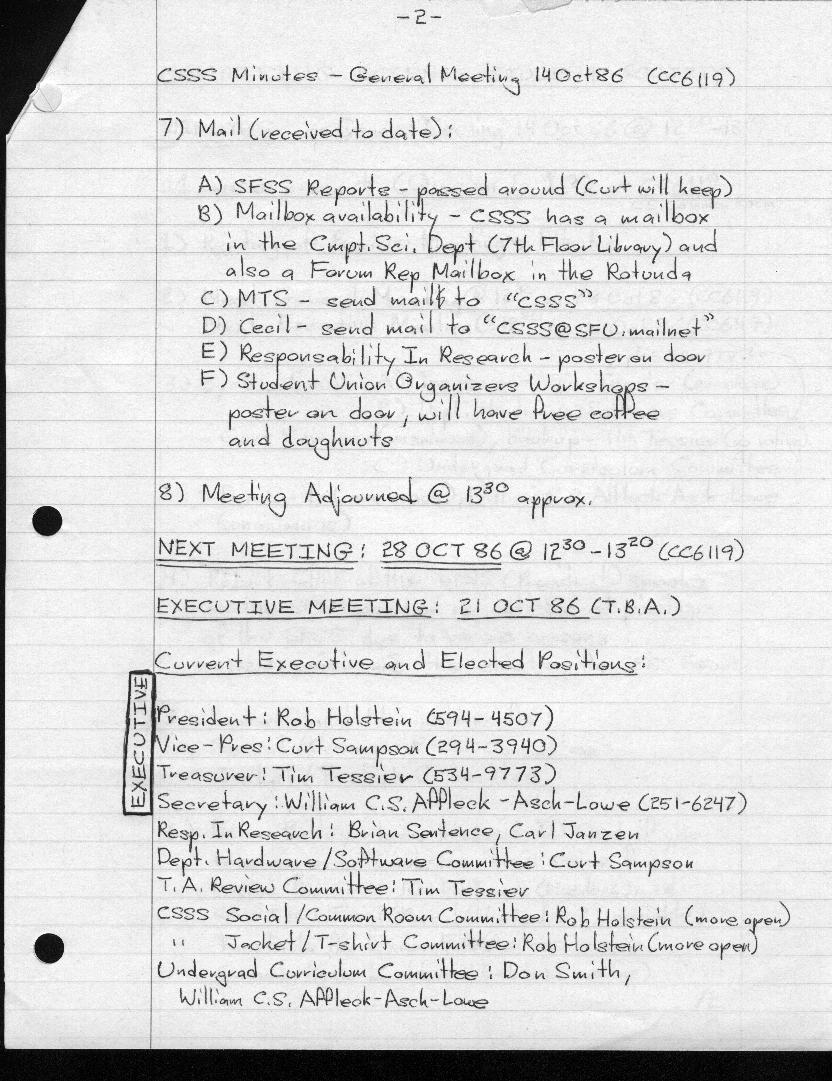 -2-
CSSS Minutes - General Meeting 14 Oct 86 (CC6119)
7) Mail (received to date):
A) SFSS Reports - passed around (Curt will keep)
B) Mailbox availability - CSSS has a mailbox
in the Cmpt. Sci. Dept (7th Floor Library) and
also a Forum Rep Mailbox in the Rotunda
C) MTS - send mail to "CSSS"
D) Cecil - send mail to "CSSS@SFU.mailnet"
E) Responsability In Research - poster on door
F) Student Union Organizers Workshops -
poster on door, will have free coffee
and doughnuts
8) Meeting Adjourned @ 13³⁰ approx.
NEXT MEETING: 28 OCT 86 @ 12³⁰-13²⁰ (CC6119)
EXECUTIVE MEETING: 21 OCT 86 (T.B.A.)
Current Executive and Elected Positions:
EXECUTIVE
President: Rob Holstein (594-4507)
Vice-Pres: Curt Sampson (294-3940)
Treasurer: Tim Tessier (534-9773)
Secretary: William C.S. Affleck-Asch-Lowe (251-6247)
Resp. In Research: Brian Sentence, Carl Janzen
Dept. Hardware/Software Committee: Curt Sampson
T.A. Review Committee: Tim Tessier
CSSS Social/Common Room Committee: Rob Holstein (more open)
" Jacket/T-shirt Committee: Rob Holstein (more open)
Undergrad Curriculum Committee: Don Smith,
William C.S. Affleck-Asch-Lowe